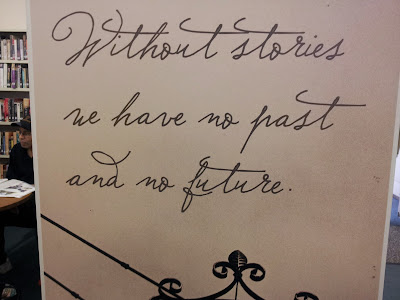 Without stories
we have no past
and no future.